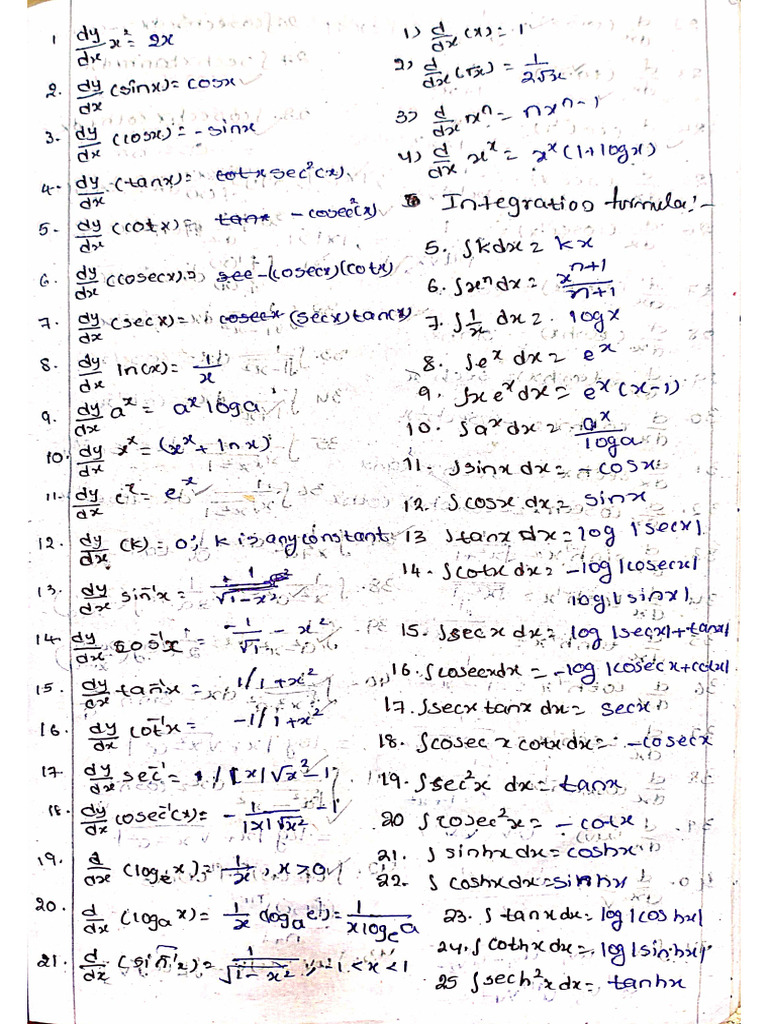 1 dy/dx x² = 2x
2. dy/dx (sinx) = cosx
3. dy/dx (cosx) = -sinx
4. dy/dx (tanx) = cotx sec²(x)
5. dy/dx (cotx) = tanx -cosec²(x)
6. dy/dx (cosecx) = see -(cosecx)(cotx)
7. dy/dx (secx) = cosecx (secx)tan(x)
8. dy/dx ln(x) = 1/x
9. dy/dx aˣ = aˣ loga
10. dy/dx xˣ = (xˣ + lnx)
11. dy/dx eˣ = eˣ
12. dy/dx (k) = 0; k is any constant
13. dy/dx sin⁻¹x = 1/√1-x²
14. dy/dx cos⁻¹x = -1/√1 - x²
15. dy/dx tan⁻¹x = 1/1+x²
16. dy/dx cot⁻¹x = -1/1+x²
17. dy/dx sec⁻¹ = 1/|x|√x²-1
18. dy/dx cosec⁻¹(x) = - 1/|x|√x² -1
19. d/dx (logₑx) = 1/x, x>0
20. d/dx (logₐx) = 1/x (logₐe) = 1/x logₑa
21. d/dx (sin⁻¹x) = 1/√1-x², -1<x<1
1) d/dx (x) = 1
2) d/dx (√x) = 1/2√x
3) d/dx xⁿ = nxⁿ⁻¹
4) d/dx xˣ = xˣ(1+logx)
Integration formula:-
5. ∫kdx = kx
6. ∫xⁿdx = xⁿ⁺¹/n+1
7. ∫1/x dx = logx
8. ∫eˣ dx = eˣ
9. ∫xeˣdx = eˣ(x-1)
10. ∫aˣdx = aˣ/loga
11. ∫sinx dx = -cosx
12. ∫cosx dx = sinx
13 ∫tanx dx = log |secx|
14. ∫cotx dx = -log|cosecx|
log|sinx|
15. ∫secx dx = log |secx|+tanx|
16. ∫cosecxdx = -log|cosecx+cotx|
17. ∫secx tanx dx = secx
18. ∫cosec x cotx dx = -cosecx
19. ∫sec²x dx = tanx
20 ∫cosec²x = -cotx
21. ∫sinhx dx = coshx
22. ∫coshx dx = sinhx
23. ∫tanx dx = log|coshx|
24. ∫cothx dx = log|sinhx|
25 ∫sech²x dx = tanhx